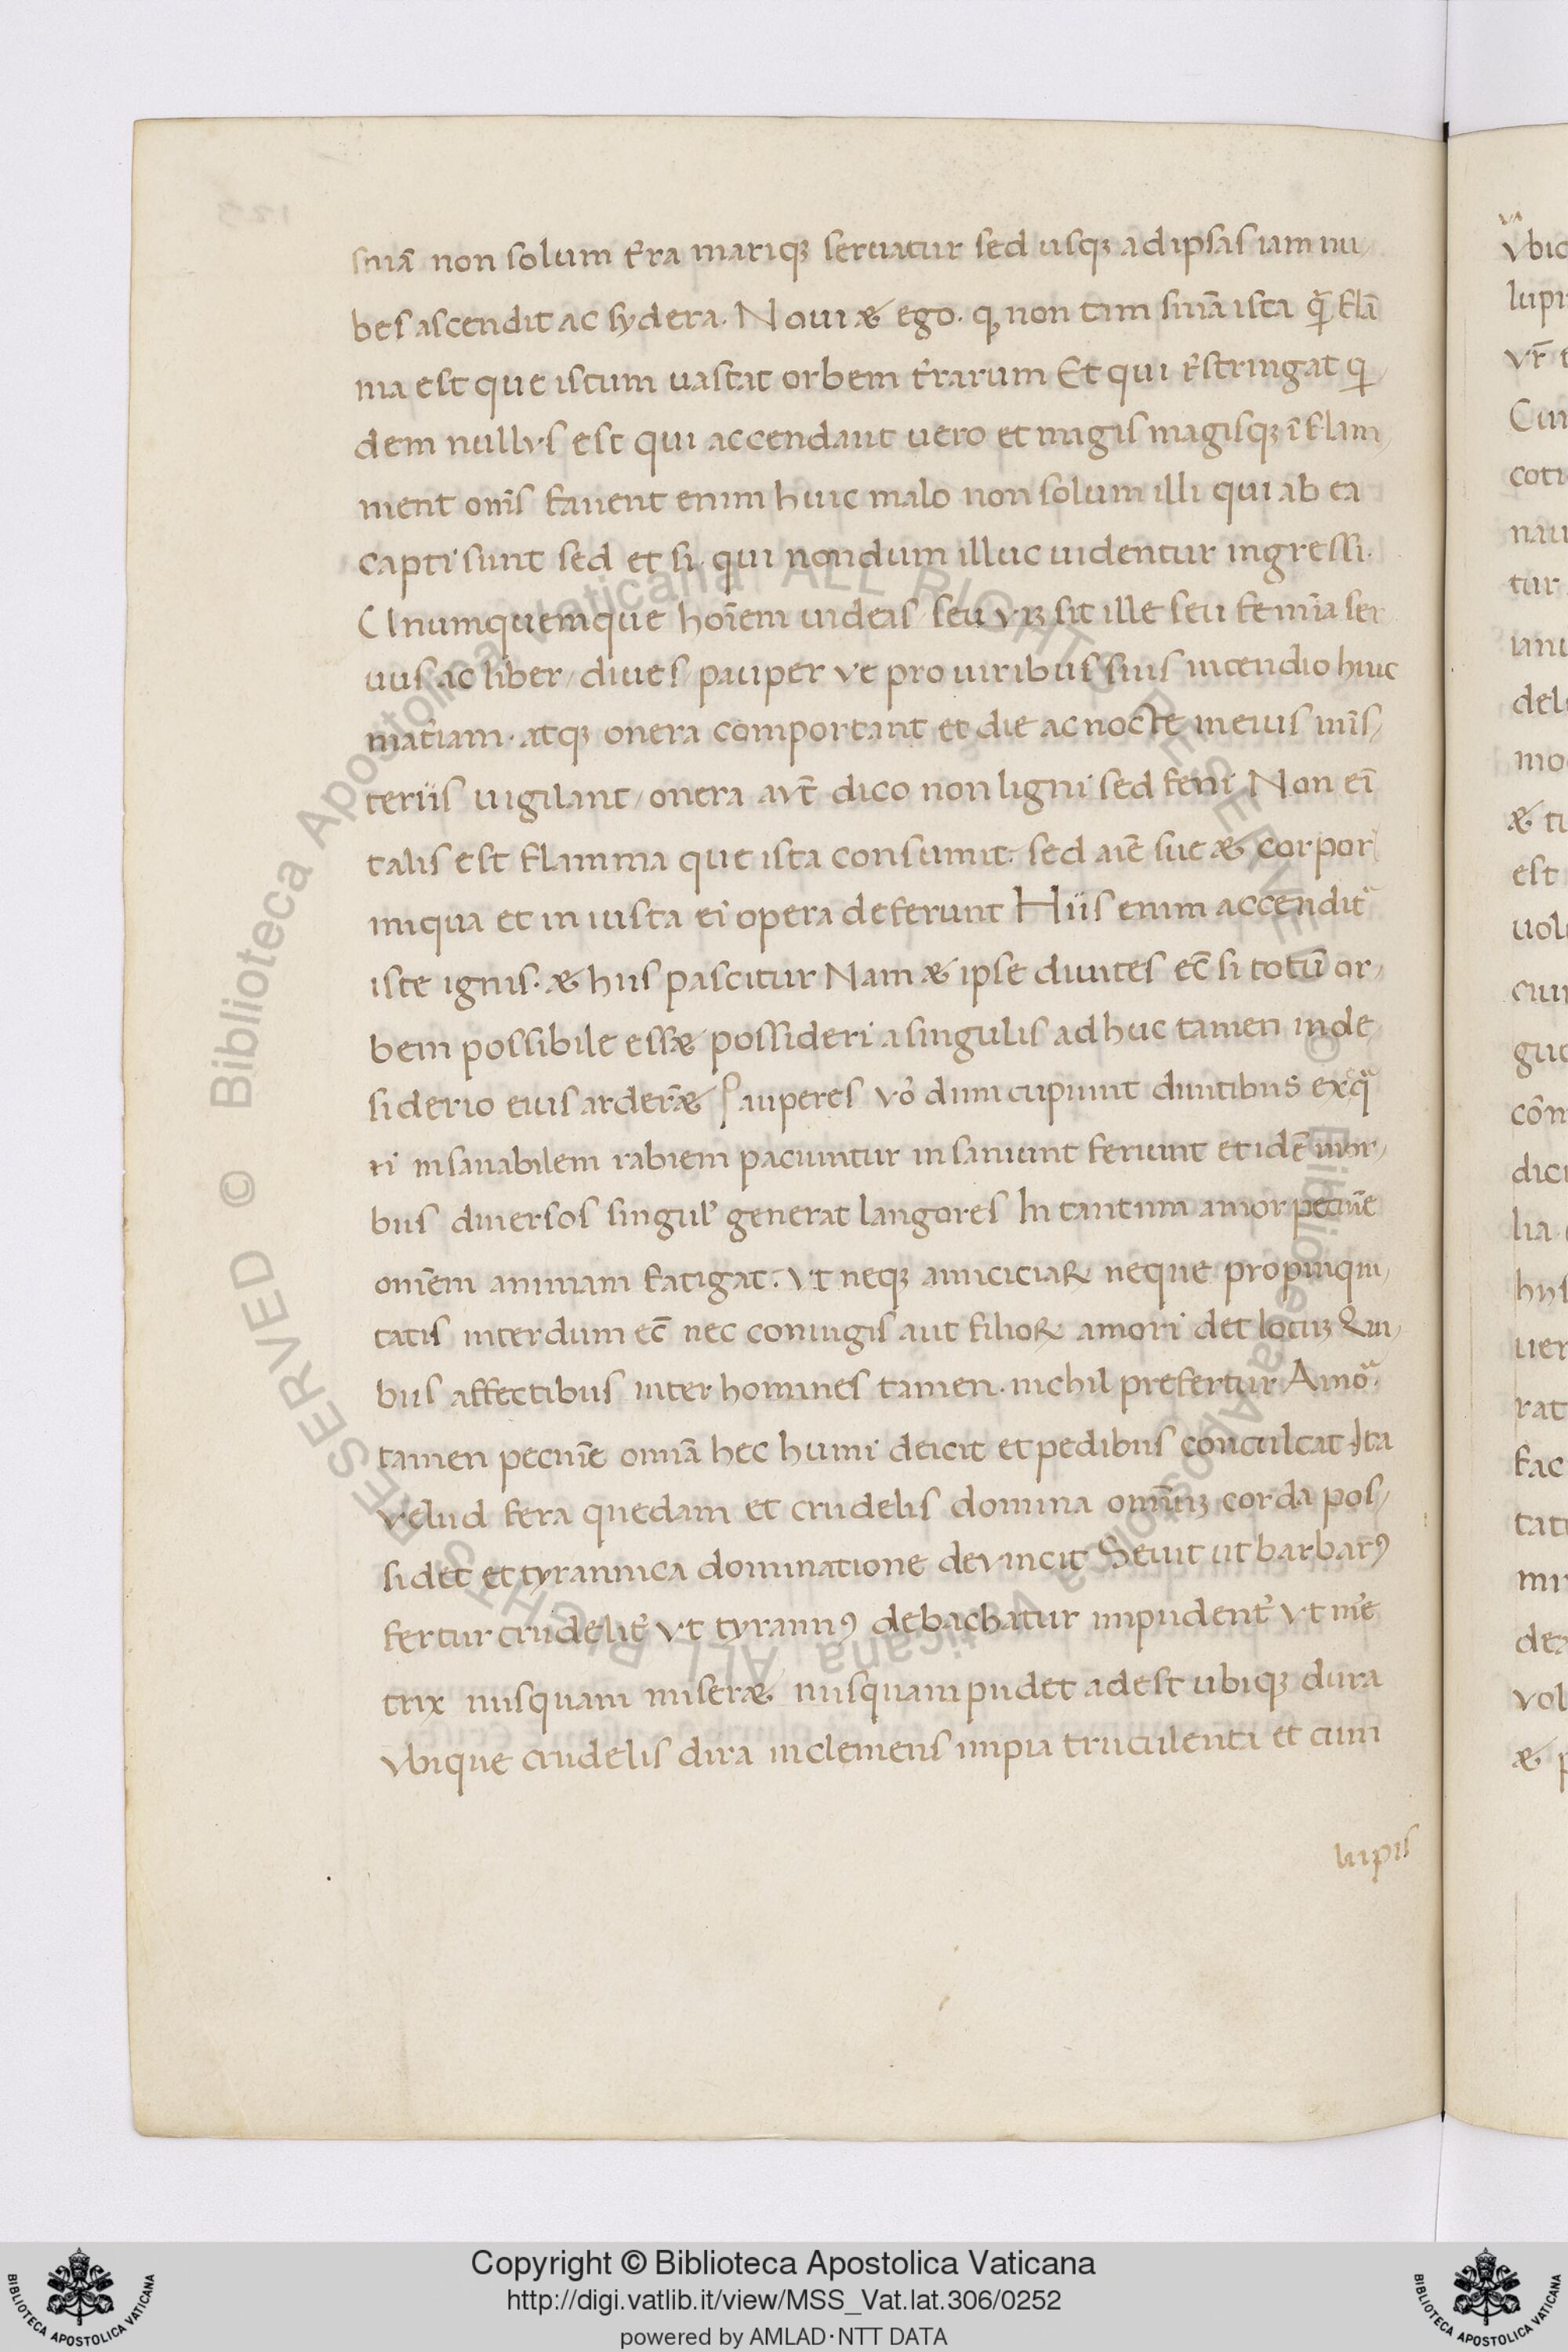 smã non solum t̃ra mariqꝫ seruatur sed usqꝫ ad ipsas iam nu/
bes ascendit ac sydera. Noui & ego. ꝙ non tam smã ista q̃ flã
ma est que istum uastat orbem t̃rarum Et qui r̃stringat qi/
dem nullvs est qui accendant uero et magis magisqꝫ ĩflam/
ment om̃s fauent enim huic malo non solum illi qui ab ea
capti sunt sed et si. qui nondum illuc uidentur ingressi.
Unumquemque hoĩem uideas seu vir sit ille seu femĩa ser
uus ac liber/ diues/ pauper ve pro uiribus suis incendio huic
mat̃iam. atqꝫ onera comportant et die ac nocte in eius mĩs/
teriis uigilant/ onera avt̃ dico non ligni sed feni Non eĩ
talis est flamma que ista consumit. sed aĩe sue & corpori
iniqua et in iusta ei opera deferunt Hiis enim accendit᷑
iste ignis. & hiis pascitur Nam & ipse diuites ec̃ si totũ or/
bem possibile ess& possideri a singulis adhuc tamen in de/
siderio eius arder& Pauperes vo᷑ dum cupiunt diuitibus exq̃
ri insanabilem rabiem paciuntur insaniunt feriunt et idẽ mor/
bus diuersos singul᷑ generat langores In tantum amor pecũie
om̃em animam fatigat. vt neqꝫ amiciciaꝝ neque propinqui/
tatis interdum ec̃ nec coniugis aut filioꝝ amori det locuꝫ Qui/
bus affectibus inter homines tamen. nichil prefertur Amo᷑.
tamen pecũie om̃ia hec humi deicit et pedibus conculcat Ita
velud fera quedam et crudelis domina om̃iuꝫ corda pos/
sidet et tyrannica dominatione devincit Seuit ut barbarꝰ
fertur crudelit᷑ vt tyrannꝰ debachatur impudent᷑ vt me᷑
trix nusquam miser& nusquam pudet adest ubiqꝫ dura
vbique crudelis dira inclemens impia truculenti et cum
lupis
Copyright © Biblioteca Apostolica Vaticana
http://digi.vatlib.it/view/MSS_Vat.lat.306/0252
powered by AMLAD·NTT DATA